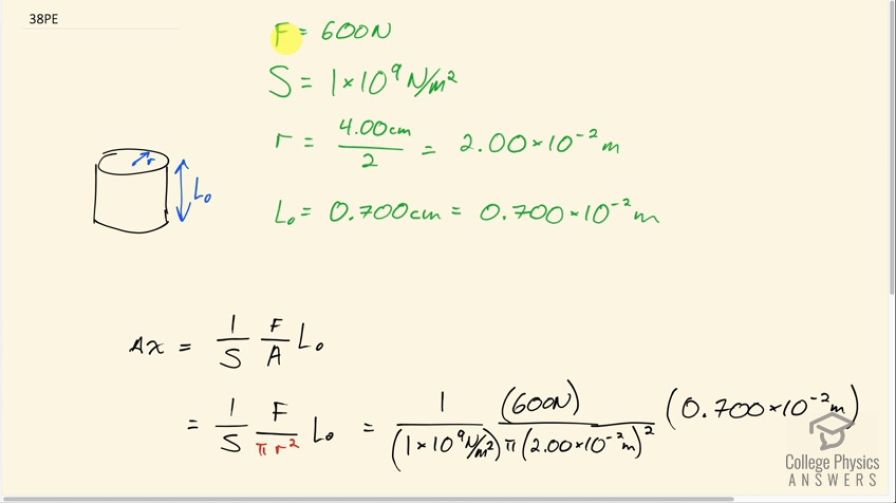 38PE
F = 600N
S = 1×10⁹ N/m²
r = 4.00cm/2 = 2.00×10⁻² m
r
L₀
L₀ = 0.700cm = 0.700×10⁻² m
Δx = 1/S F/A L₀
= 1/S F/πr² L₀ = 1/(1×10⁹ N/m²) (600N)/π(2.00×10⁻² m)² (0.700×10⁻² m)
College Physics
ANSWERS